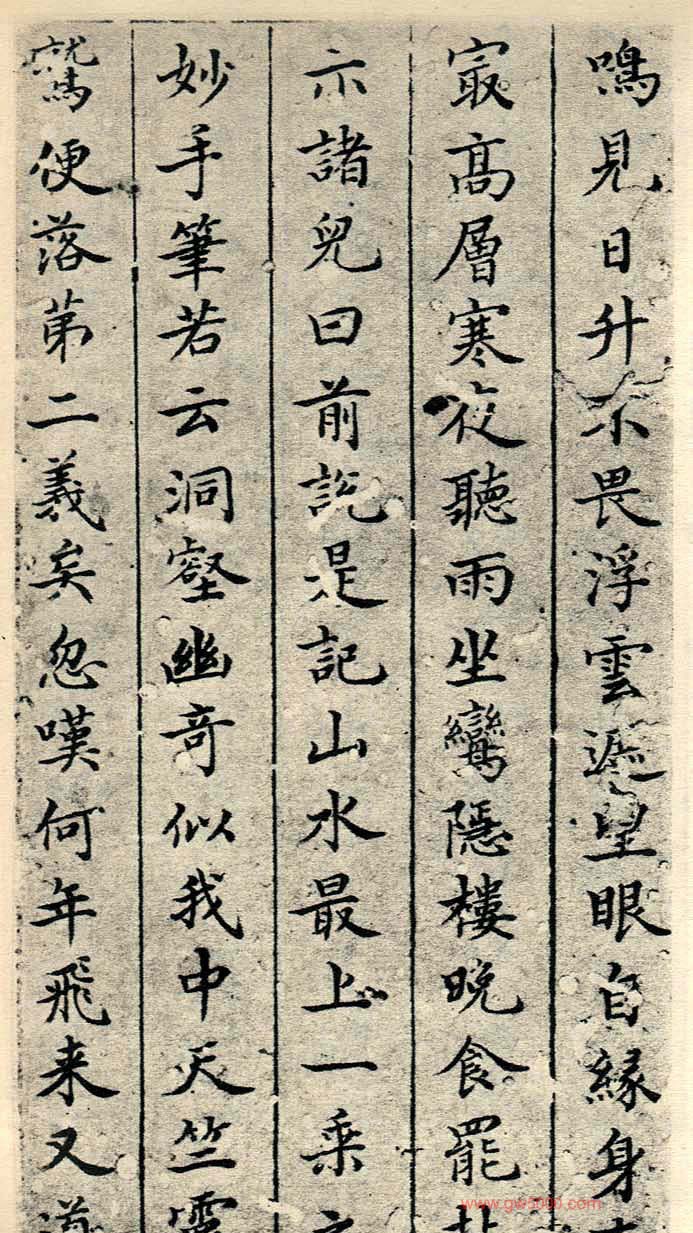 鳴見日升不畏浮雲遮望眼自緣身
冣高層寒夜聽雨坐鸞隱樓晚食罷
示諸兒曰前説是記山水最上一乘
妙手筆若云洞壑幽奇似我中天竺靈
鷲便落第二義矣忽嘆何年飛来又道
www.gw5000.com